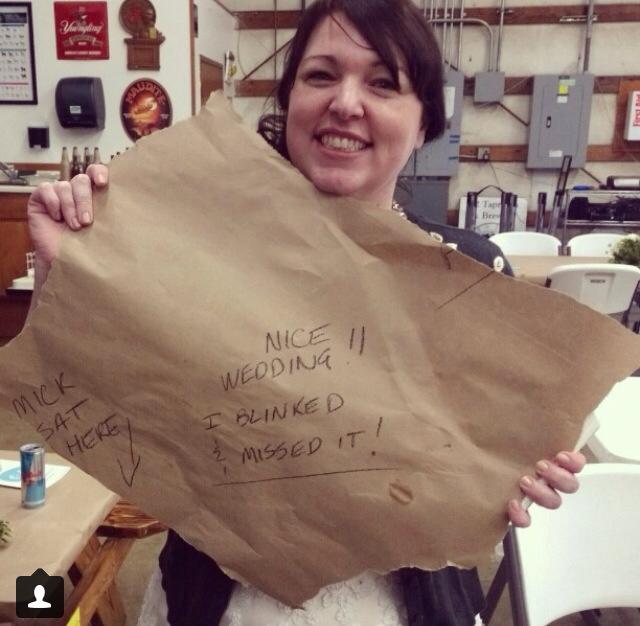 Yuengling
NICE
WEDDING !!
I BLINKED
& MISSED IT!
MICK
SAT
HERE